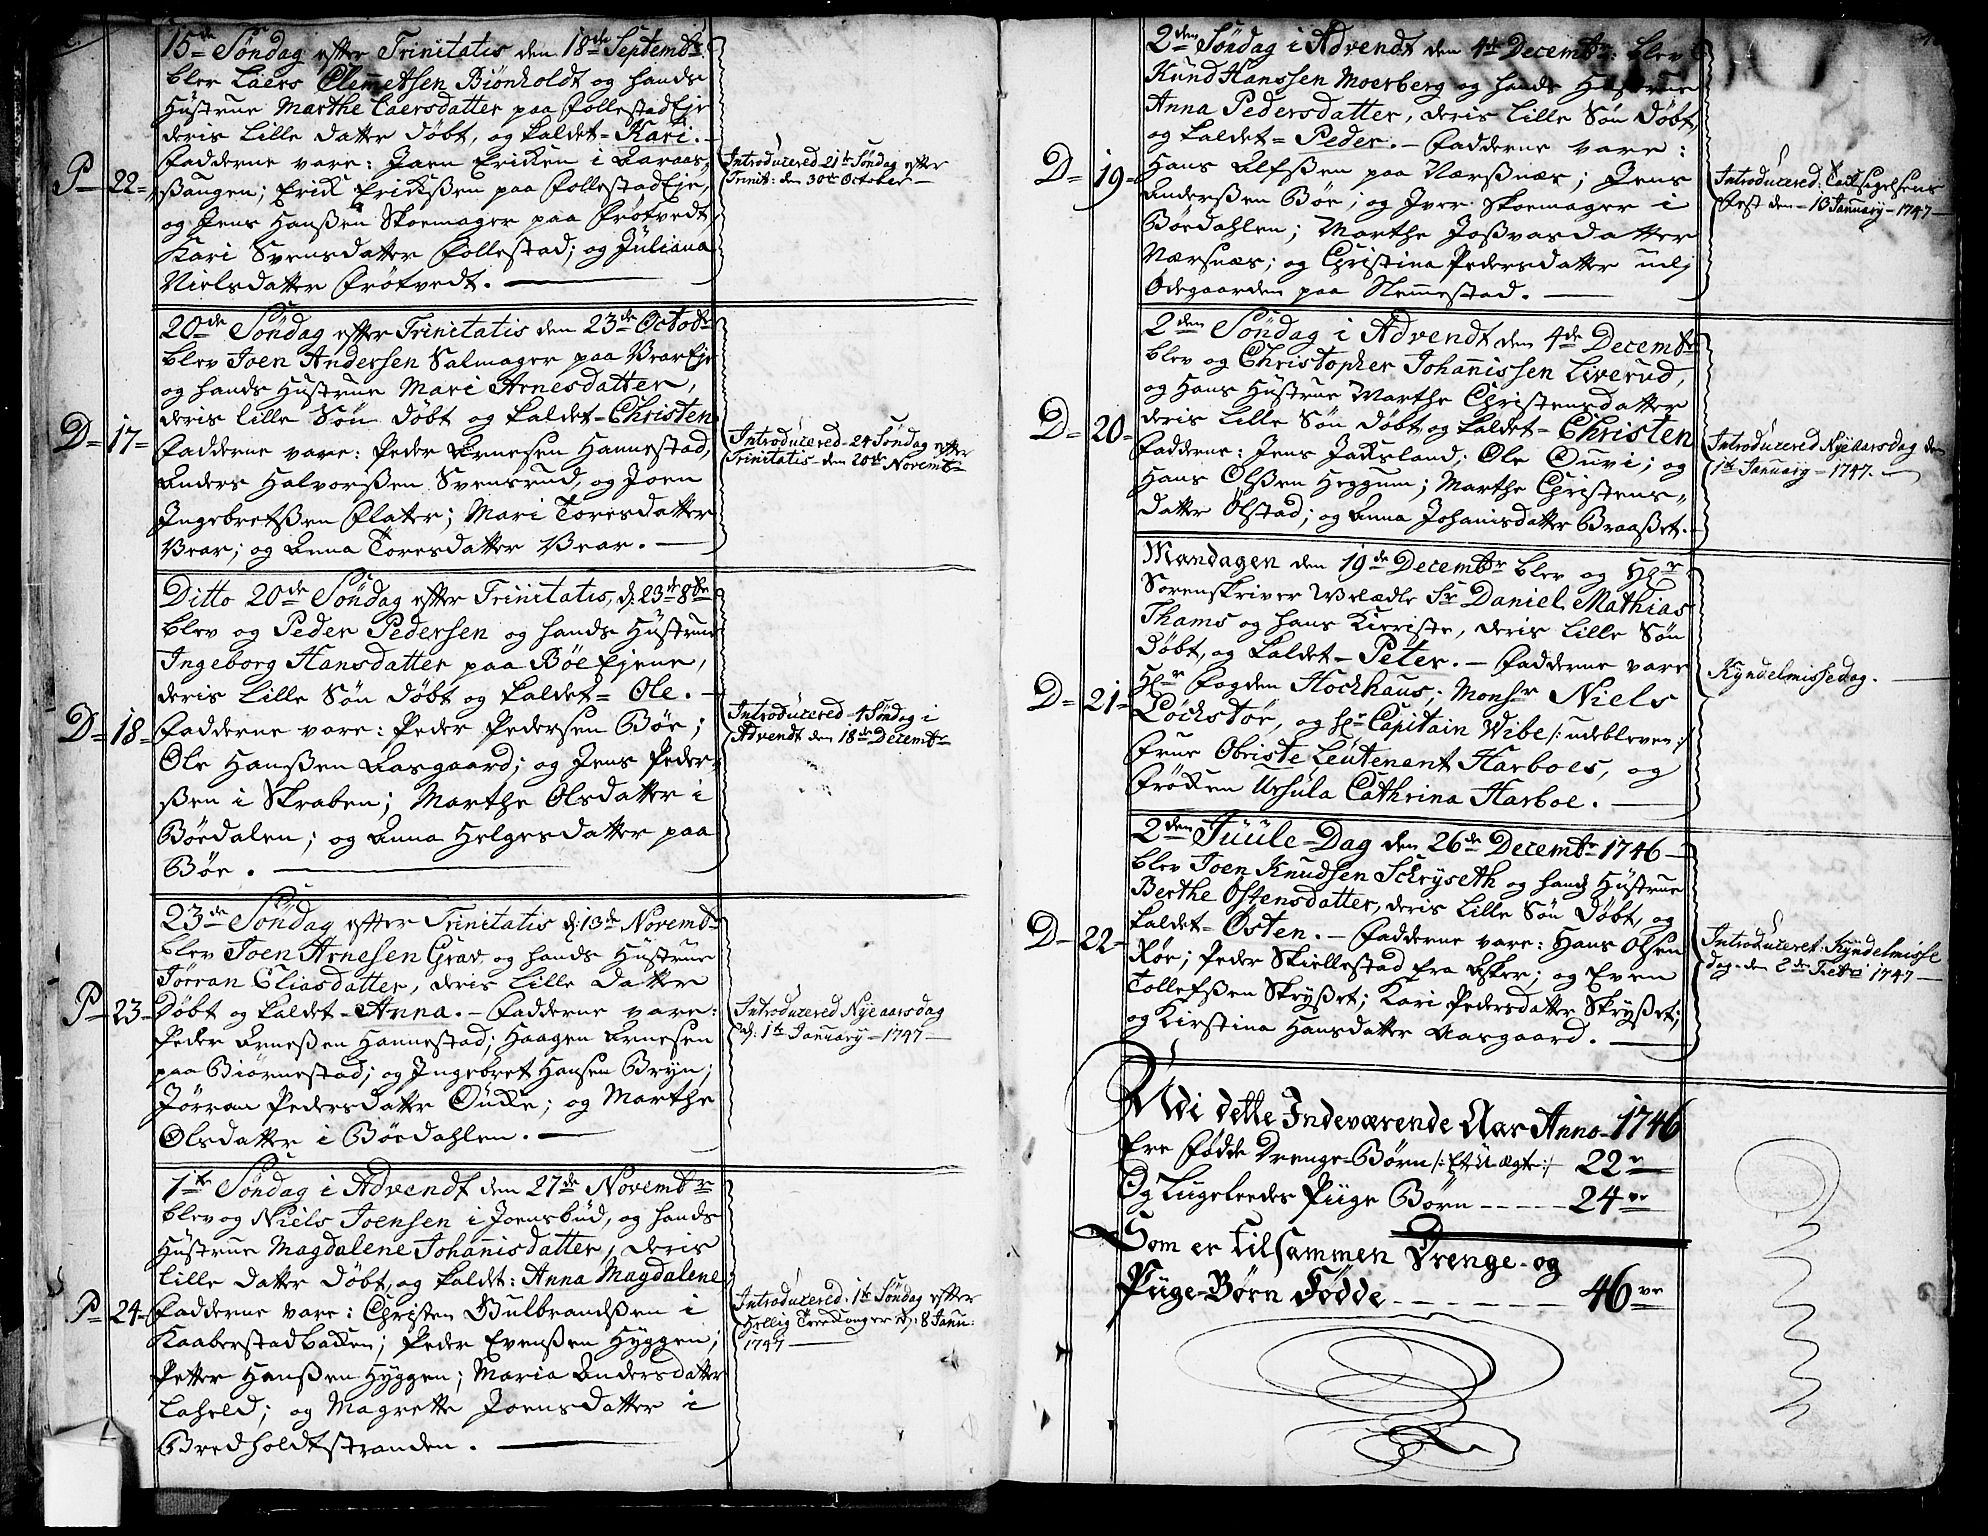 15de Söndag efter Trinitatis den 18de Septembr
blev Laers Clemetsen Biönholdt og hands
Hüstrue Marthe Laersdatter paa FollestadEje
deris lille datter döbt, og kaldet= Kari. -
P= 22= Fadderne vare: Joen Ericksen i Aaraas,,
ßaugen; Erick Erickßen paa FollestadEje,
og Jens Hanßen Skoemager paa Frötvedt
Kari Svensdatter Follestad; og Jüliana
Nielsdatter Frötvedt. —
Introdücered 21de Söndag efter
Trinit: den 30de October —
20de Söndag efter Trinitatis den 23de Octobr
blev Joen Andersen Salmager paa VearEje
og hands Hüstrue Mari Arnesdatter,
deris lille Sön döbt og kaldet= Christen
D= 17= Fadderne vare: Peder Arnesen Hannestad,
Anders Halvorßen Svensrud, og Joen
Ingebretßen Flater; Mari Toresdatter
Vear; og Anna Toresdatter Vear. —
Introdücered 24 Söndag efter
Trinitatis den 20de Novembr
Ditto 20de Söndag efter Trinitatis, d: 23de 8br
blev og Peder Pedersen og hands Hüstrue
Ingeborg Hansdatter paa BöeEjene,
deris lille Sön döbt og kaldet= Ole. -
D= 18= Fadderne vare: Peder Pedersen Böe;
Ole Hanßen Aasgaard; og Jens Peder-
ßen i Skraben; Marthe Olsdatter i
Böedalen; og Anna Helgesdatter paa
Böe. —
Introdücered 4 Söndag i
Advendt den 18de Decembr
23de Söndag efter Trinitatis d: 13de Novembr
blev Joen Arnesen Grav og hands Hüstrue
Jörran Eliasdatter, deris lille datter
P= 23= Döbt og kaldet= Anna. - Fadderne vare:
Peder Arneßen Hannestad; Haagen Arnesen
paa Biörnestad; og Ingebret Hansen Bryn;
Jörran Pedersdatter Ouke; og Marthe
Olsdatter i Böedahlen. —
Introdücered Nyeaarsdag
d: 1te January 1747 —
1te Söndag i Advendt den 27de Novembr
blev og Niels Joensen i Joensbüd, og hands
Hüstrue Magdalene Johannisdatter, deris
lille datter döbt, og kaldet: Anna Magdalene
P= 24= Fadderne vare: Christen Gulbrandßen i
Kaaberstadbacken; Peder Evenßen Hyggen;
Petter Hanßen Hyggen; Maria Andersdatter
Laheld; og Magrette Joensdatter i
Bredholdtstranden. —
Introdücered 1te Söndag efter
Hellig Tree Konger d: 8 Janu:
1747 —
2den Söndag i Advendt den 4de Decembr: blev
Knud Hanssen Moerberg og hands Hüstrue
Anna Pedersdatter, deris lille Sön döbt,
og kaldet= Peder. - Fadderne vare:
D= 19= Hans Alfßen paa Nærßnæs; Jens
Anderßen Böe; og Iver Skoemager i
Böedahlen; Marthe Joßvasdatter
Nærsnæs; og Christina Pedersdatter
Ödegaarden paa Slemmestad. —
Introdücered:
Fest den 10 January 1747 —
2den Söndag i Advendt den 4de Decembr
blev og Christopher Johannissen Liverud,
og Hans Hüstrue Marthe Christensdatter
deris lille Sön döbt og kaldet= Christen
D= 20= Fadderne: Jens Jaksland; Ole Ouvi; og
Hans Olßen Heggum; Marthe Christens,,
datter Ölstad; og Anna Johanisdatter Braaßet.
Introdücered Nyeaarsdag den
1te January 1747. —
Mandagen den 19de Decembr blev og Hr
Sorenskriver Welædle Sr Daniel Mathias
Thams og hans Kieriste, deris lille Sön
döbt, og kaldet= Peter. - Fadderne vare
D= 21= Hr Fogden Hockhaus; Monsr Niels
Löchstör, og hr Capitain Wibe /:udebleven:/
Frue Obriste Leutenant Harboes, og
Fröken Ursula Cathrina Harboe. —
Kyndelmissedag. —
2den Jüüle-Dag den 26de Decembr 1746 —
blev Joen Knudsen Schryseth og hands Hüstrue
Berthe Östensdatter, deris lille Sön döbt, og
D= 22= kaldet= Östen. - Fadderne vare: Hans Olsen
Röe; Peder Skiellestad fra Asker; og Even
Tollefßen Skryßet; Kari Pedersdatter Skryßet;
og Kirstina Hansdatter Aasgaard. —
Introdüceret: Kyndelmisse
dag den 2de Febr 1747 —
Udi dette Indeværende Aar Anno 1746
Ere Födde Drenge-Börn /:Et Uægte:/ 22ve
Og Lugeleedes Piige Börn - - - - - 24ve
Som er tilsammen Drenge- og
Piige-Börn Födde - - - - - - - 46ve